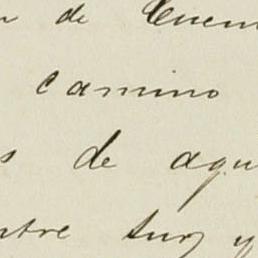 de Cuen
camino
s de agu
ntre sur y